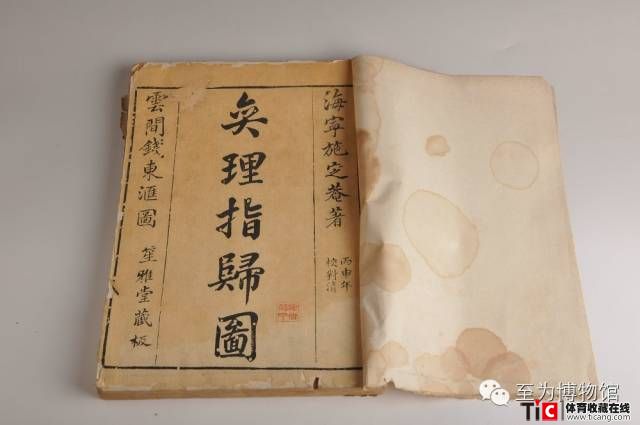 海寧施定菴著
丙申年
校對清
弈理指歸圖
雲間錢東滙圖 笙雅堂藏板
至为博物馆
TiC 体育收藏在线
www.ticang.com